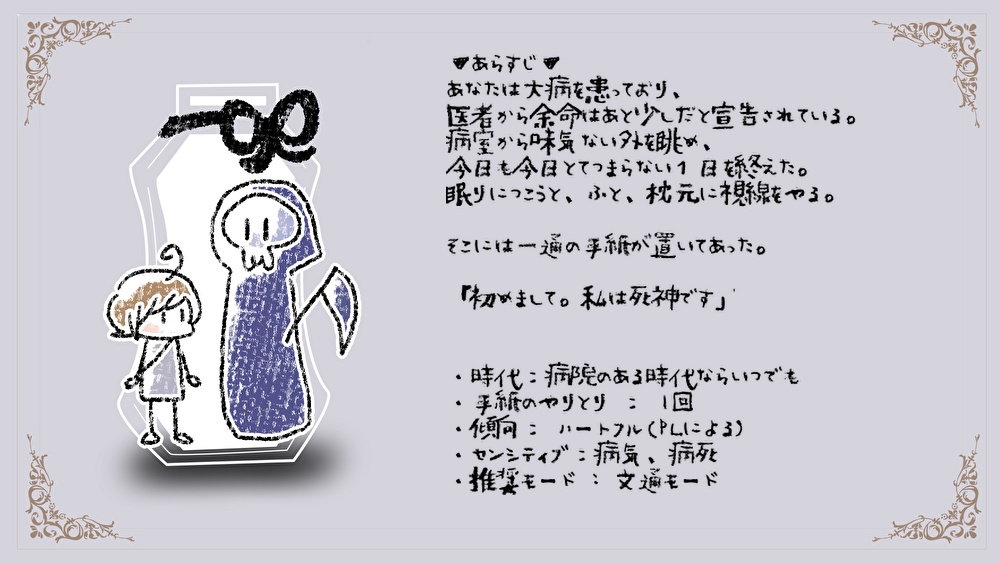 ♥あらすじ♥
あなたは大病を患っており、
医者から余命はあと少しだと宣告されている。
病室から味気ない外を眺め、
今日も今日とてつまらない1日を終えた。
眠りにつこうと、ふと、枕元に視線をやる。
そこには一通の手紙が置いてあった。
「初めまして。私は死神です」
・時代：病院のある時代ならいつでも
・手紙のやりとり ： 1回
・傾向： ハートフル(PLによる)
・センシティブ：病気、病死
・推奨モード ： 文通モード